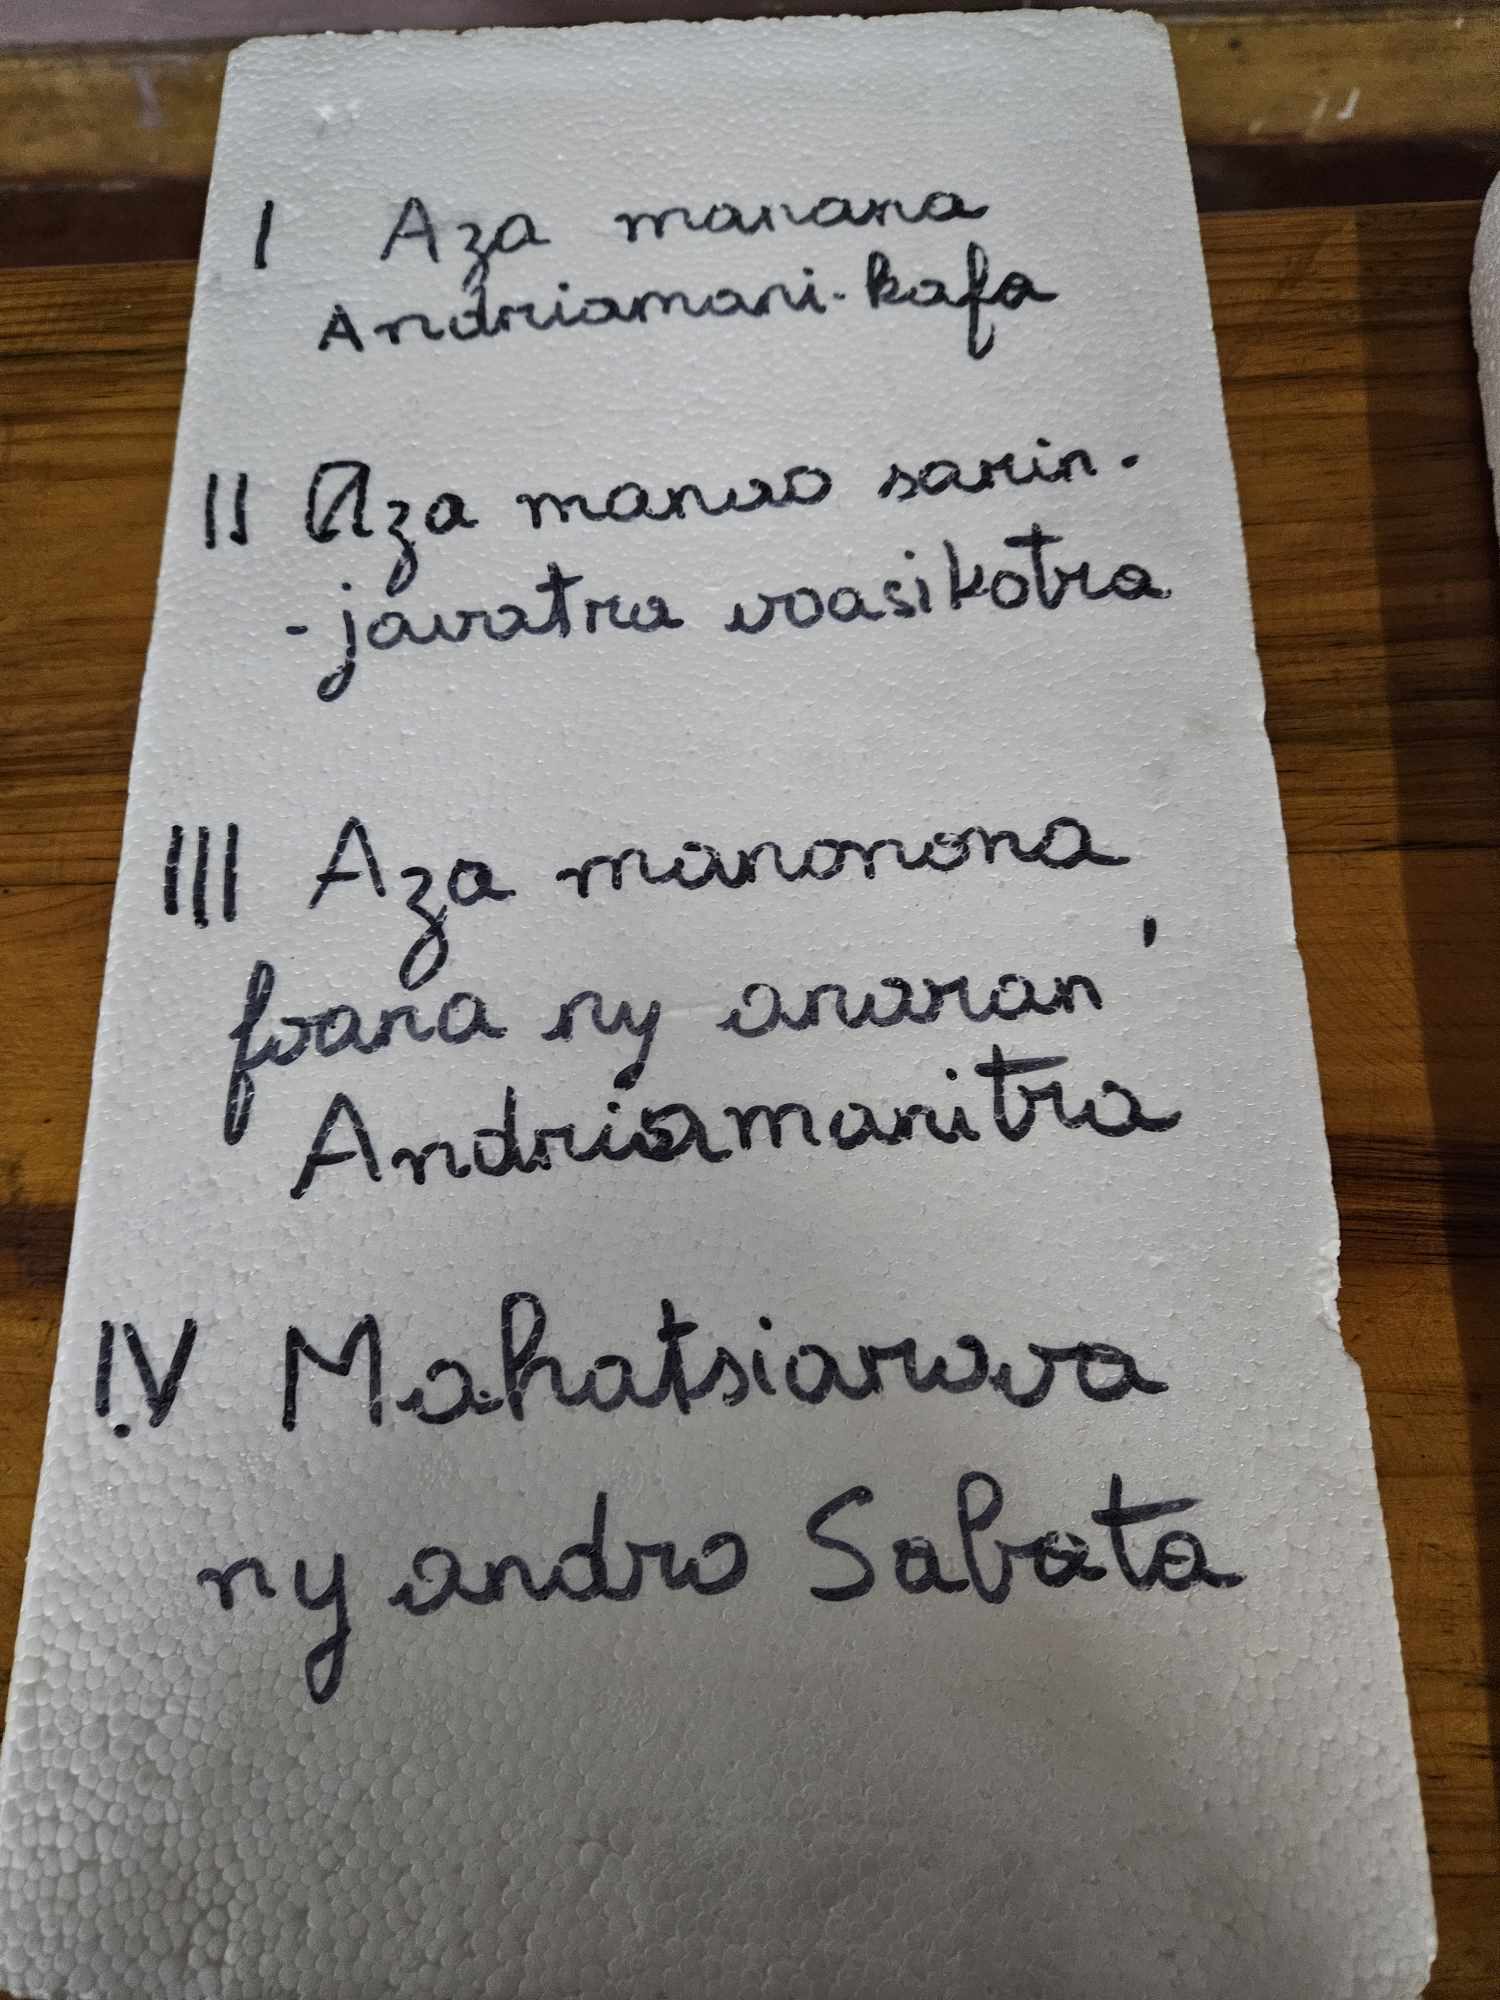 I Aza manana
Andriamani-kafa
II Aza manao sarin-
-javatra voasikotra
III Aza manonona
foana ny anaran'
Andriamanitra
IV Mahatsiarova
ny andro Sabata